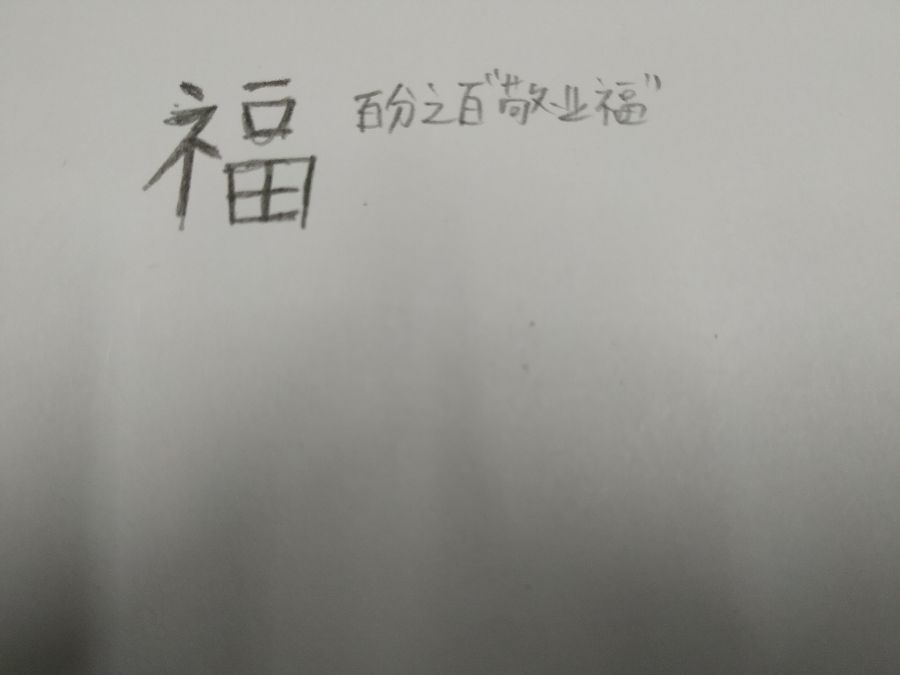 福 百分之百“敬业福”